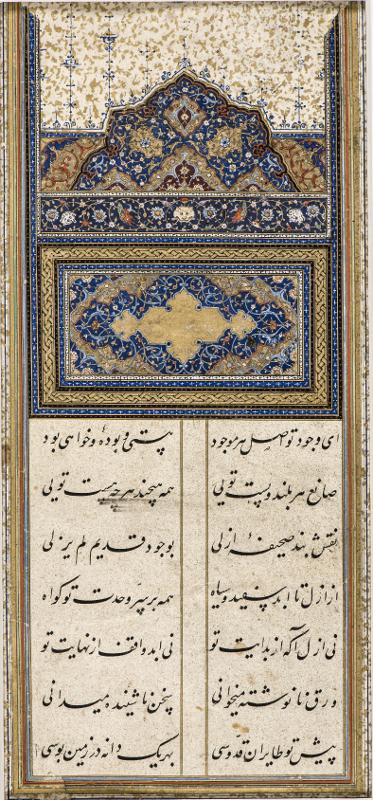 ای وجود تو اصل هر موجود هستی و بودهٔ و خواهی بود
صانع هر بلند و پست تویی همه هیچند هر چه هست تویی
نقش بند صحیفهٔ ازلی بوجود قدیم لم یزلی
از ازل تا ابد سفید و سیاه همه بر سر وحدت تو کواه
نی ازل آکه از بدایت تو نی ابد واقف از نهایت تو
ورق نانوشته میخوانی سخن ناشنیده میدانی
پیش تو طایران قدوسی بهر یک دانه در زمین بوسی